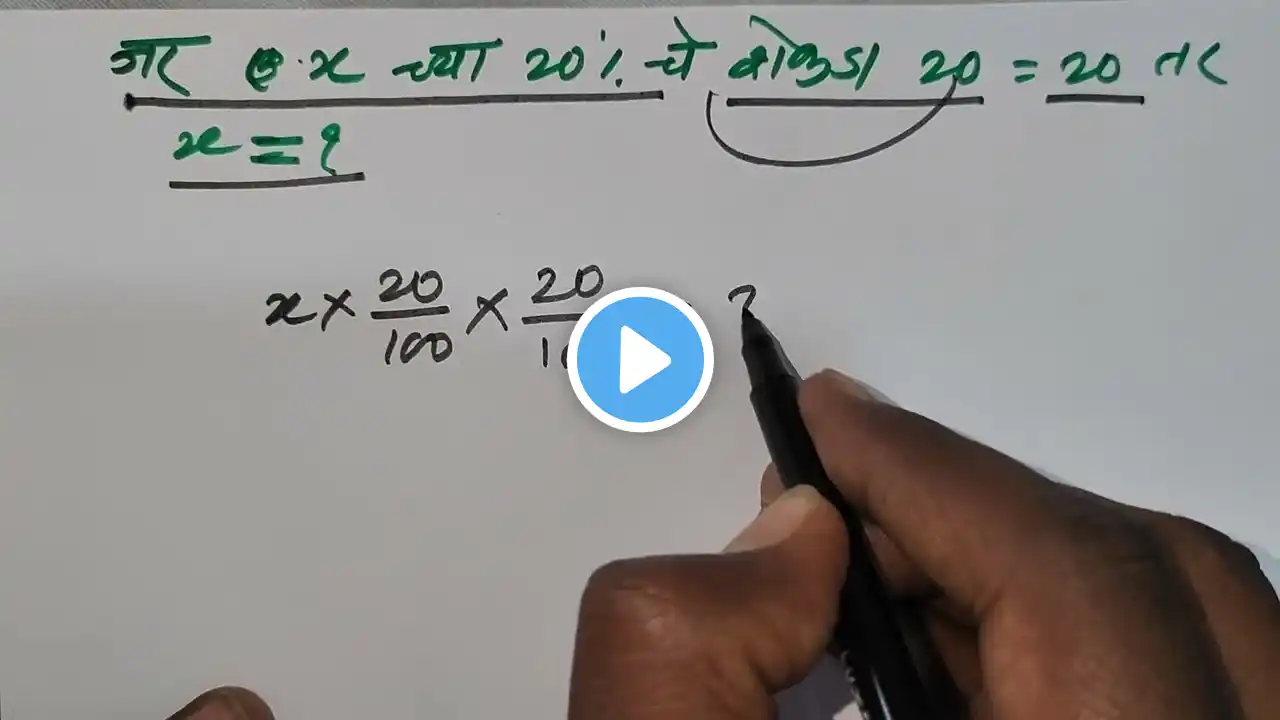 जर x च्या 20% चे शेकडा 20 = 20 तर
x = ?
x × 20/100 × 20/10